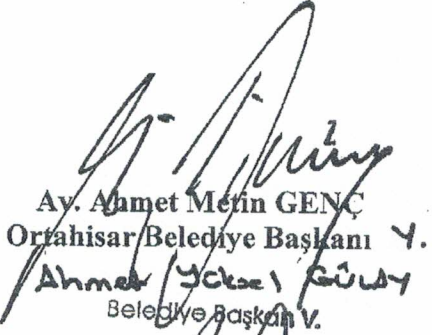 Av. Ahmet Metin GENÇ
Ortahisar Belediye Başkanı Y.
Ahmet Yüksel GÜLAY
Belediye Başkan V.